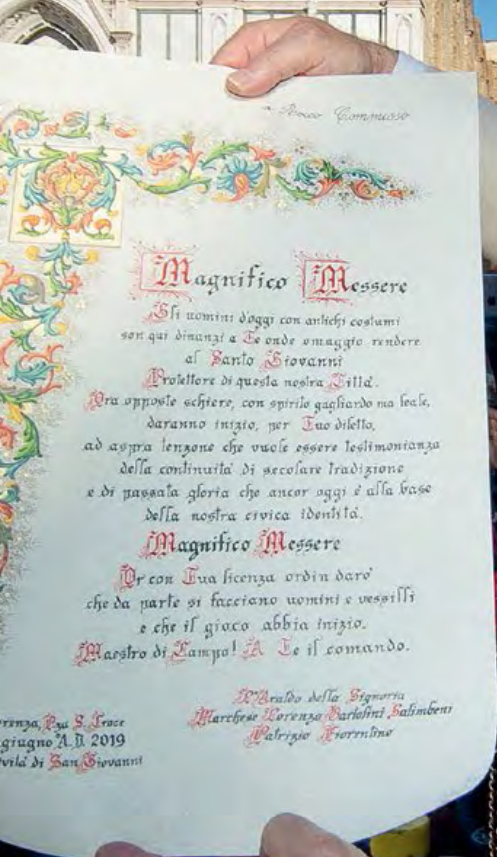 Rocco Commisso
Magnifico Messere
Gli uomini d'oggi con antichi costumi
son qui dinanzi a Te onde omaggio rendere
al Santo Giovanni
Protettore di questa nostra Città.
Ora opposte schiere, con spirito gagliardo ma leale,
daranno inizio, per Tuo diletto,
ad aspra tenzone che vuole essere testimonianza
della continuità di secolare tradizione
e di passata gloria che ancor oggi è alla base
della nostra civica identità.
Magnifico Messere
Or con Tua licenza ordin darò
che da parte si facciano uomini e vessilli
e che il gioco abbia inizio.
Maestro di Campo! A Te il comando.
L'Araldo della Signoria
Marchese Lorenzo Bartolini Salimbeni
Patrizio Fiorentino
renza, P.za S. Croce
giugno A.D. 2019
vità di San Giovanni